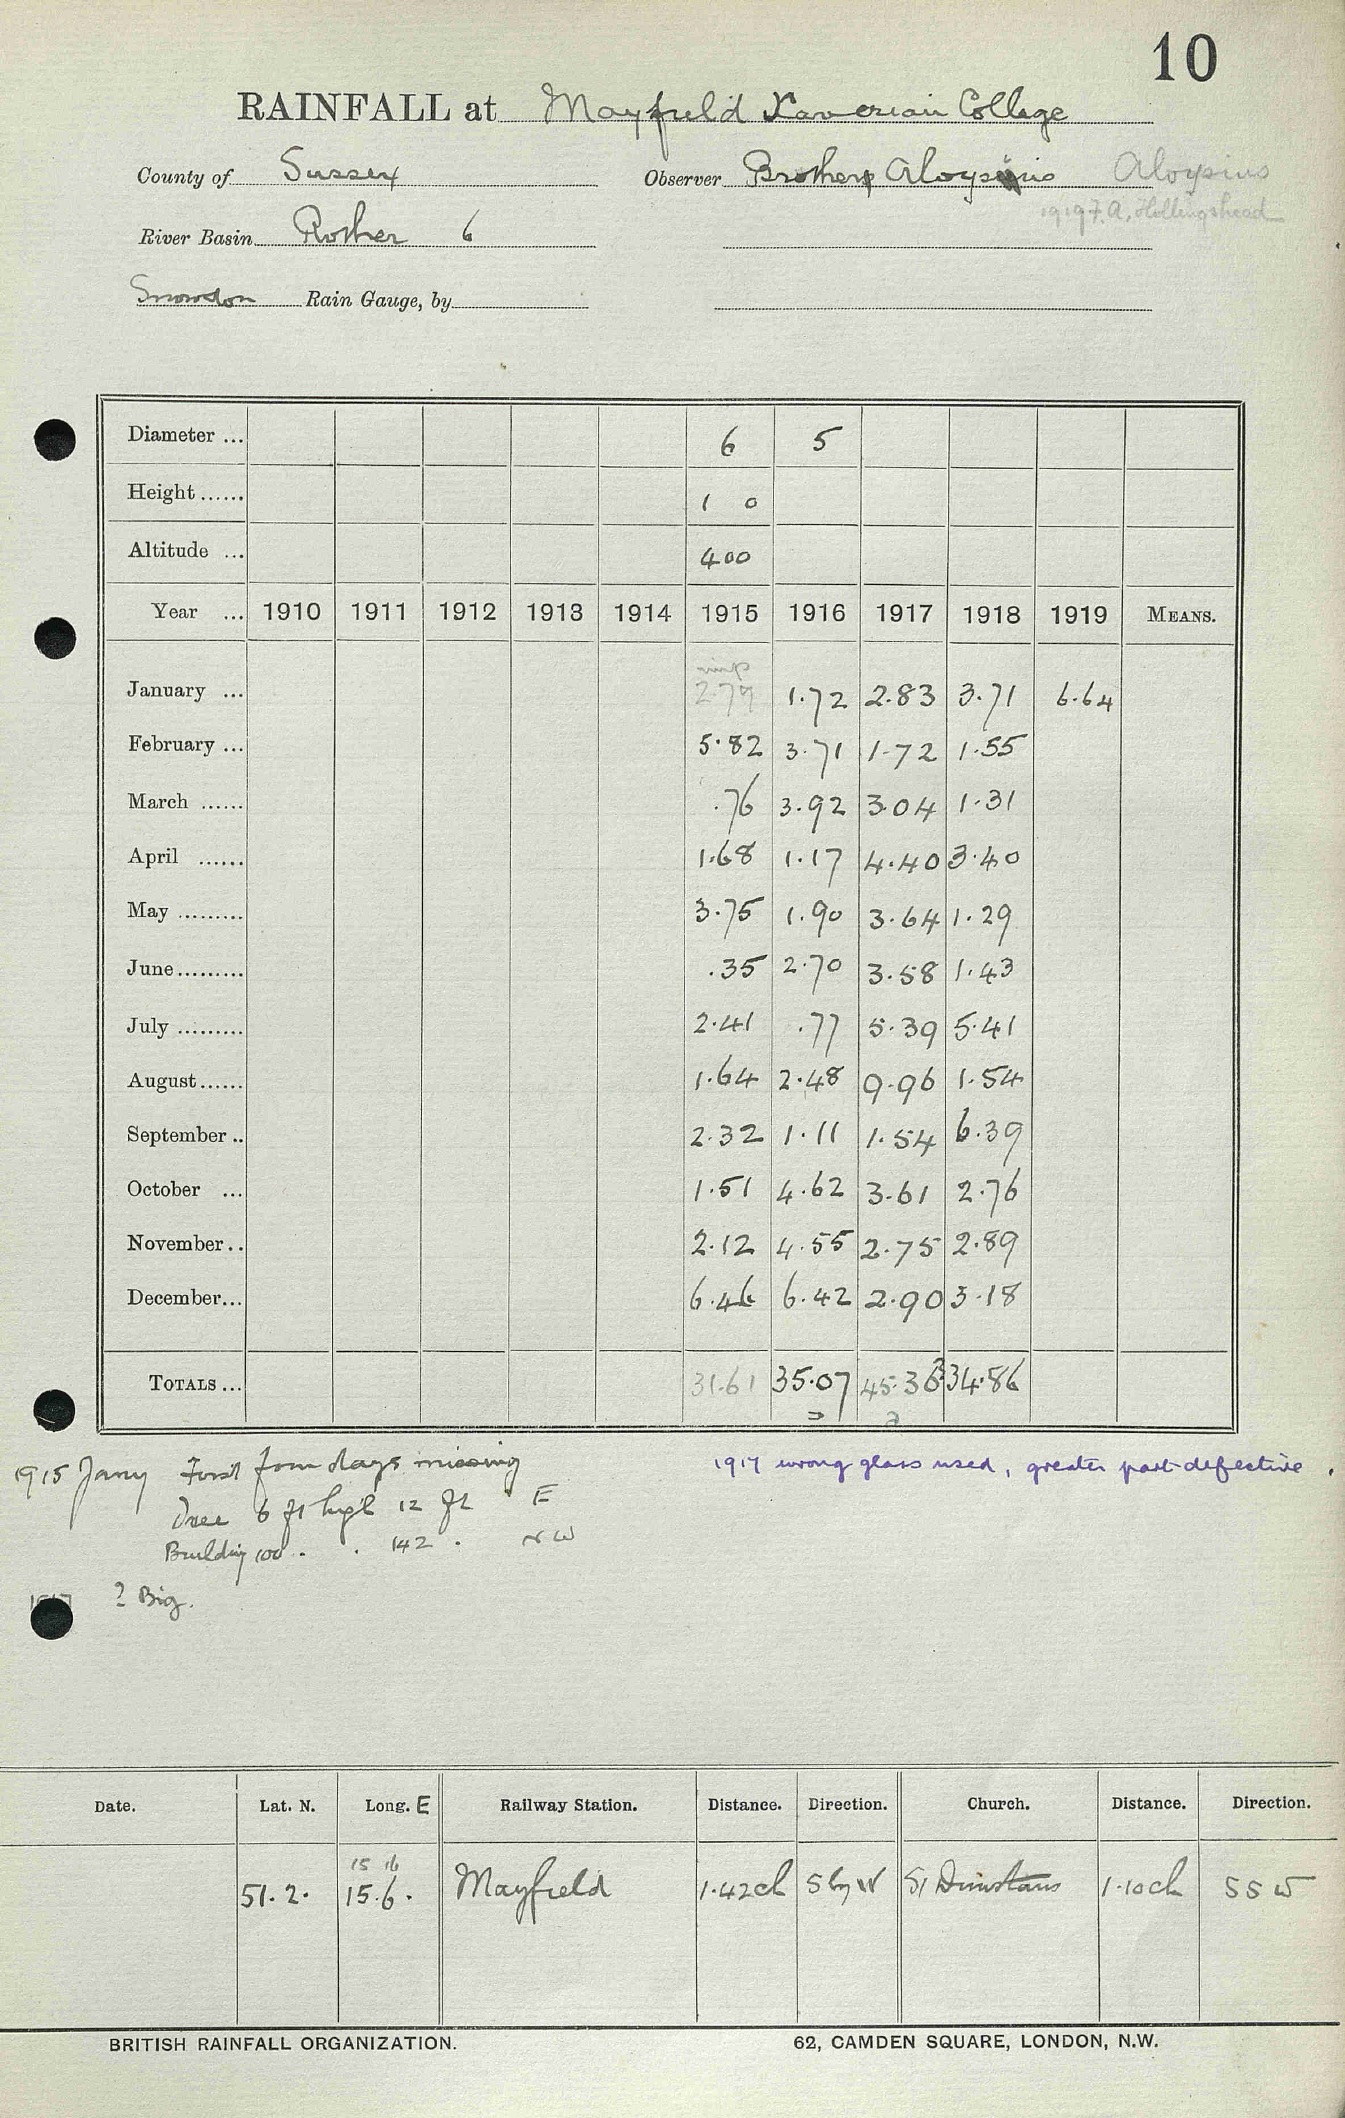 10
RAINFALL at Mayfield Xaverian College
County of Sussex Observer Brother Aloysius Aloysius
1919 F. A. Hollingshead
River Basin Rother 6
Snowdon Rain Gauge, by
Diameter ... 6 5
Height ...... 1 0
Altitude ... 400
Year ... 1910 1911 1912 1913 1914 1915 1916 1917 1918 1919 MEANS.
January ... 2.79 1.72 2.83 3.71 6.64
February ... 5.82 3.71 1.72 1.55
March ...... .76 3.92 3.04 1.31
April ...... 1.68 1.17 4.40 3.40
May ......... 3.75 1.90 3.64 1.29
June ......... .35 2.70 3.58 1.43
July ......... 2.41 .77 5.39 5.41
August ...... 1.64 2.48 9.96 1.54
September .. 2.32 1.11 1.54 6.39
October ... 1.51 4.62 3.61 2.76
November .. 2.12 4.55 2.75 2.89
December ... 6.46 6.42 2.90 3.18
TOTALS ... 31.61 35.07 45.36 34.86
1915 Jany First four days missing
Tree 6 ft high 12 ft E
Building 100 . . 142 . NW
1917 ? Big.
1917 wrong glass used, greater part defective.
Date. Lat. N. Long. E Railway Station. Distance. Direction. Church. Distance. Direction.
15 16
51.2. 15.6. Mayfield 1.42ch S by W St Dunstans 1.10ch SSW
BRITISH RAINFALL ORGANIZATION. 62, CAMDEN SQUARE, LONDON, N.W.